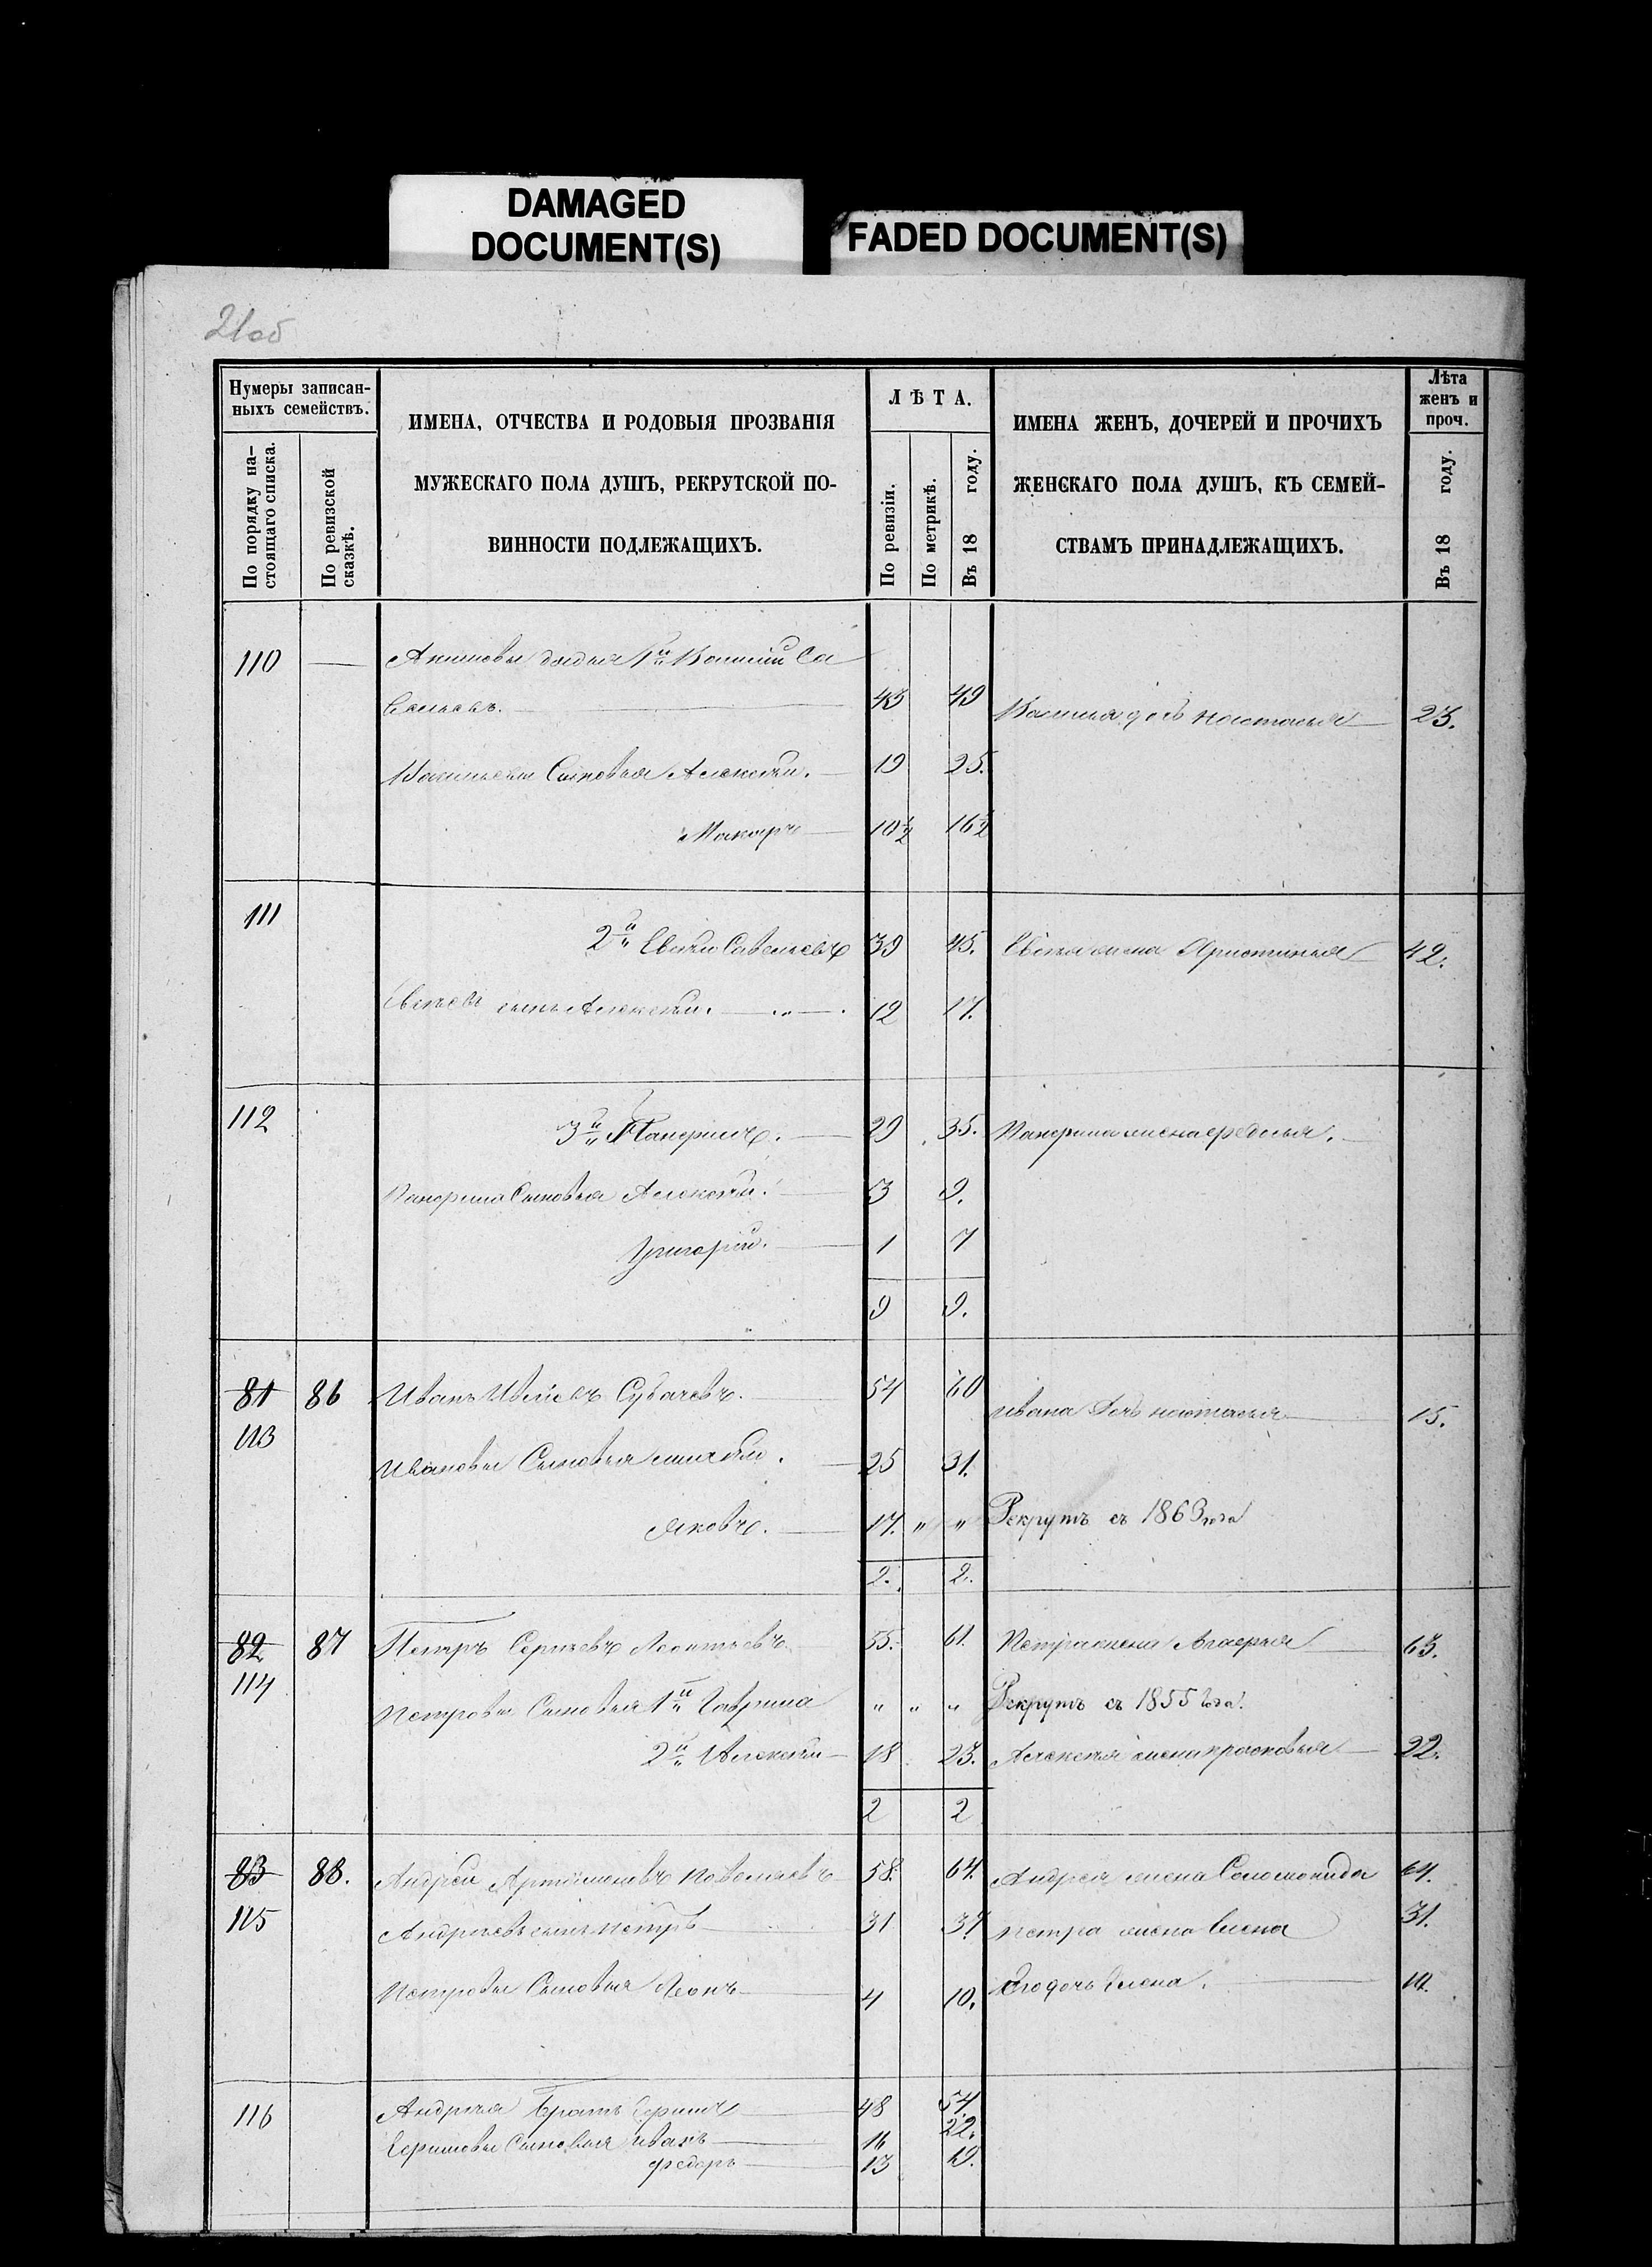 DAMAGED
DOCUMENT(S)
FADED DOCUMENT(S)
21об
Нумеры записан-
ныхъ семействъ.
По порядку на-
стоящаго списка.
По ревизской
сказкѣ.
ИМЕНА, ОТЧЕСТВА И РОДОВЫЯ ПРОЗВАНІЯ
МУЖЕСКАГО ПОЛА ДУШЪ, РЕКРУТСКОЙ ПО-
ВИННОСТИ ПОДЛЕЖАЩИХЪ.
ЛѢТА.
По ревизіи.
По метрикѣ.
Въ 18 году.
ИМЕНА ЖЕНЪ, ДОЧЕРЕЙ И ПРОЧИХЪ
ЖЕНСКАГО ПОЛА ДУШЪ, КЪ СЕМЕЙ-
СТВАМЪ ПРИНАДЛЕЖАЩИХЪ.
Лѣта
женъ и
проч.
Въ 18 году.
110 — Акимовы дядья 1й Василій Са
вельевъ. 43 49 Василья дочь Настасья 23.
Васильевы Сыновья Алексѣй. 19 25.
Макаръ 10½ 16½
111 2й Евсѣй Савельевъ 39 45. Евсѣя жена Христинья 42.
Евсѣевъ сынъ Алексѣй. 12 17.
112 3й 29 35. жена
Сыновья Алексѣй. 3 9.
Григорій. 1 7
9 9.
81 86 Иванъ Субачевъ. 54 60 Ивана дочь Настасья 15.
113 Ивановы Сыновья 25 31.
Яковъ. 17. " " Рекрутъ съ 1863 года
2. 2.
82 87 Петръ Сергѣевъ Леонтьевъ 55. 61. Петра жена 63.
114 Петровы Сыновья 1й Гаврила " " " Рекрутъ съ 1855 года.
2й Алексѣй 18 23. Алексѣя жена Прасковья 22.
2 2
83 88. Андрей Артамоновъ 58. 64. Андрея жена Соломонида 64.
115 Андреевъ сынъ Петръ 31 37 Петра жена Елена 31.
Петровы Сыновья Леонъ 4 10. Его дочь Елена.
116 Андрея Братъ 48 54.
Сыновья Иванъ 16 22.
Федоръ 13 19.